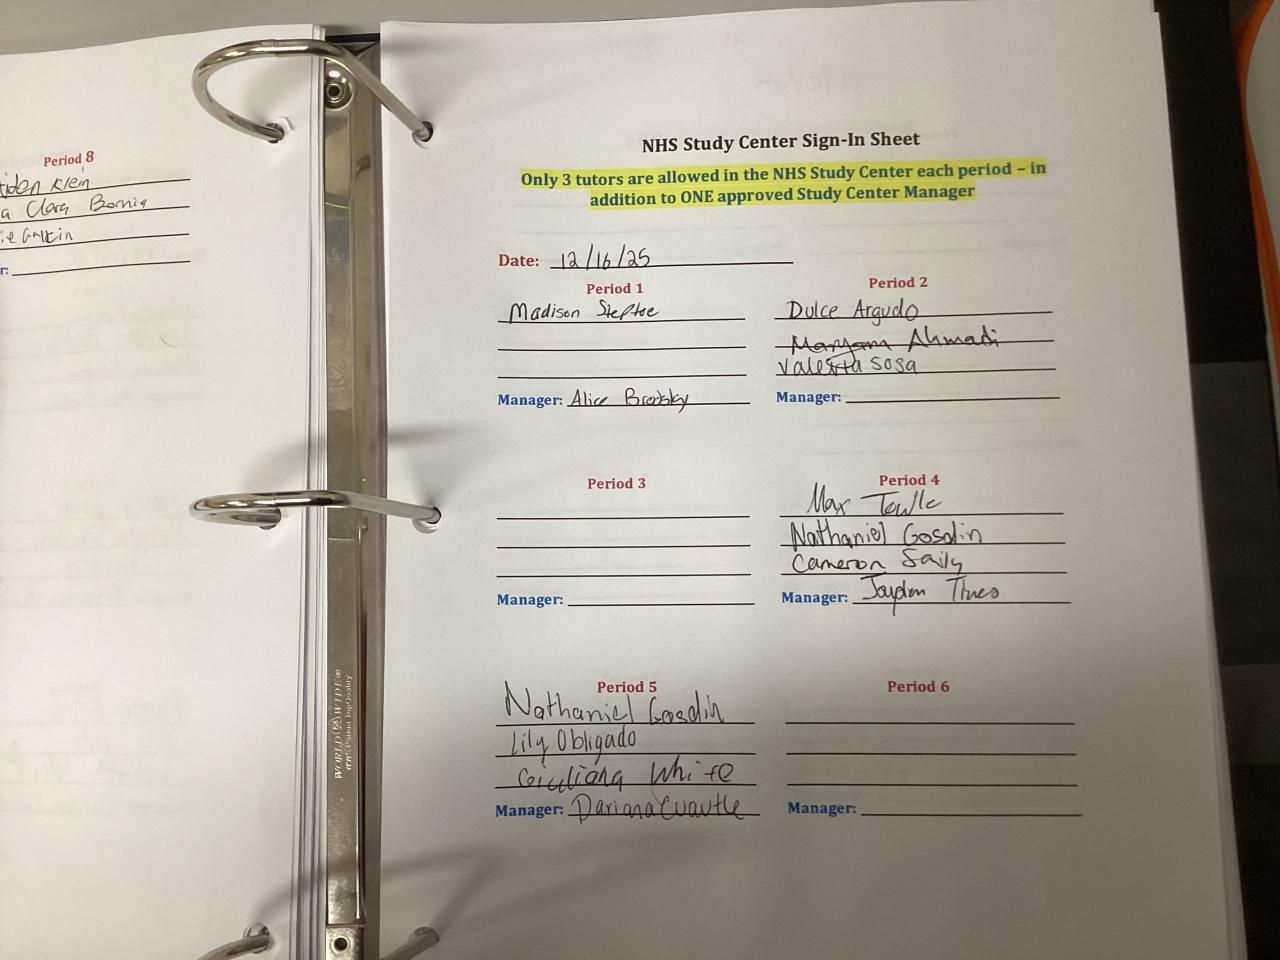 Period 8
iden Klein
a Clara
r:
NHS Study Center Sign-In Sheet
Only 3 tutors are allowed in the NHS Study Center each period – in
addition to ONE approved Study Center Manager
Date: 12/16/25
Period 1
Madison Steptoe
Manager: Alice Brodsky
Period 2
Dulce Argudo
Maryam Ahmadi
Valeria Sosa
Manager:
Period 3
Manager:
Period 4
Max Towle
Nathaniel Gosdin
Cameron Saily
Manager: Jayden
Period 5
Nathaniel Gosdin
Lily Obligado
Giuliana White
Manager: Dariana Cuautle
Period 6
Manager:
WORLD WIDE